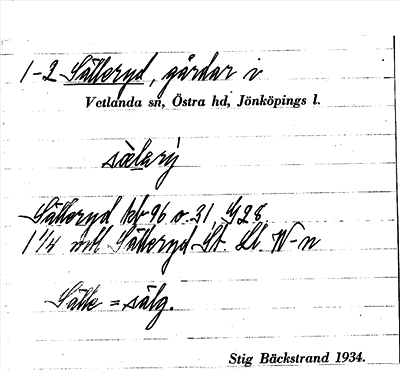 1-2 Sälleryd, gårdar i
Vetlanda sn, Östra hd, Jönköpings l.
sælarý
Sälleryd Jb 96 o. 31, 428
1 1/4 mtl Sälleryd St. Ll. W-n
Sälle = sälg.
Stig Bäckstrand 1934.